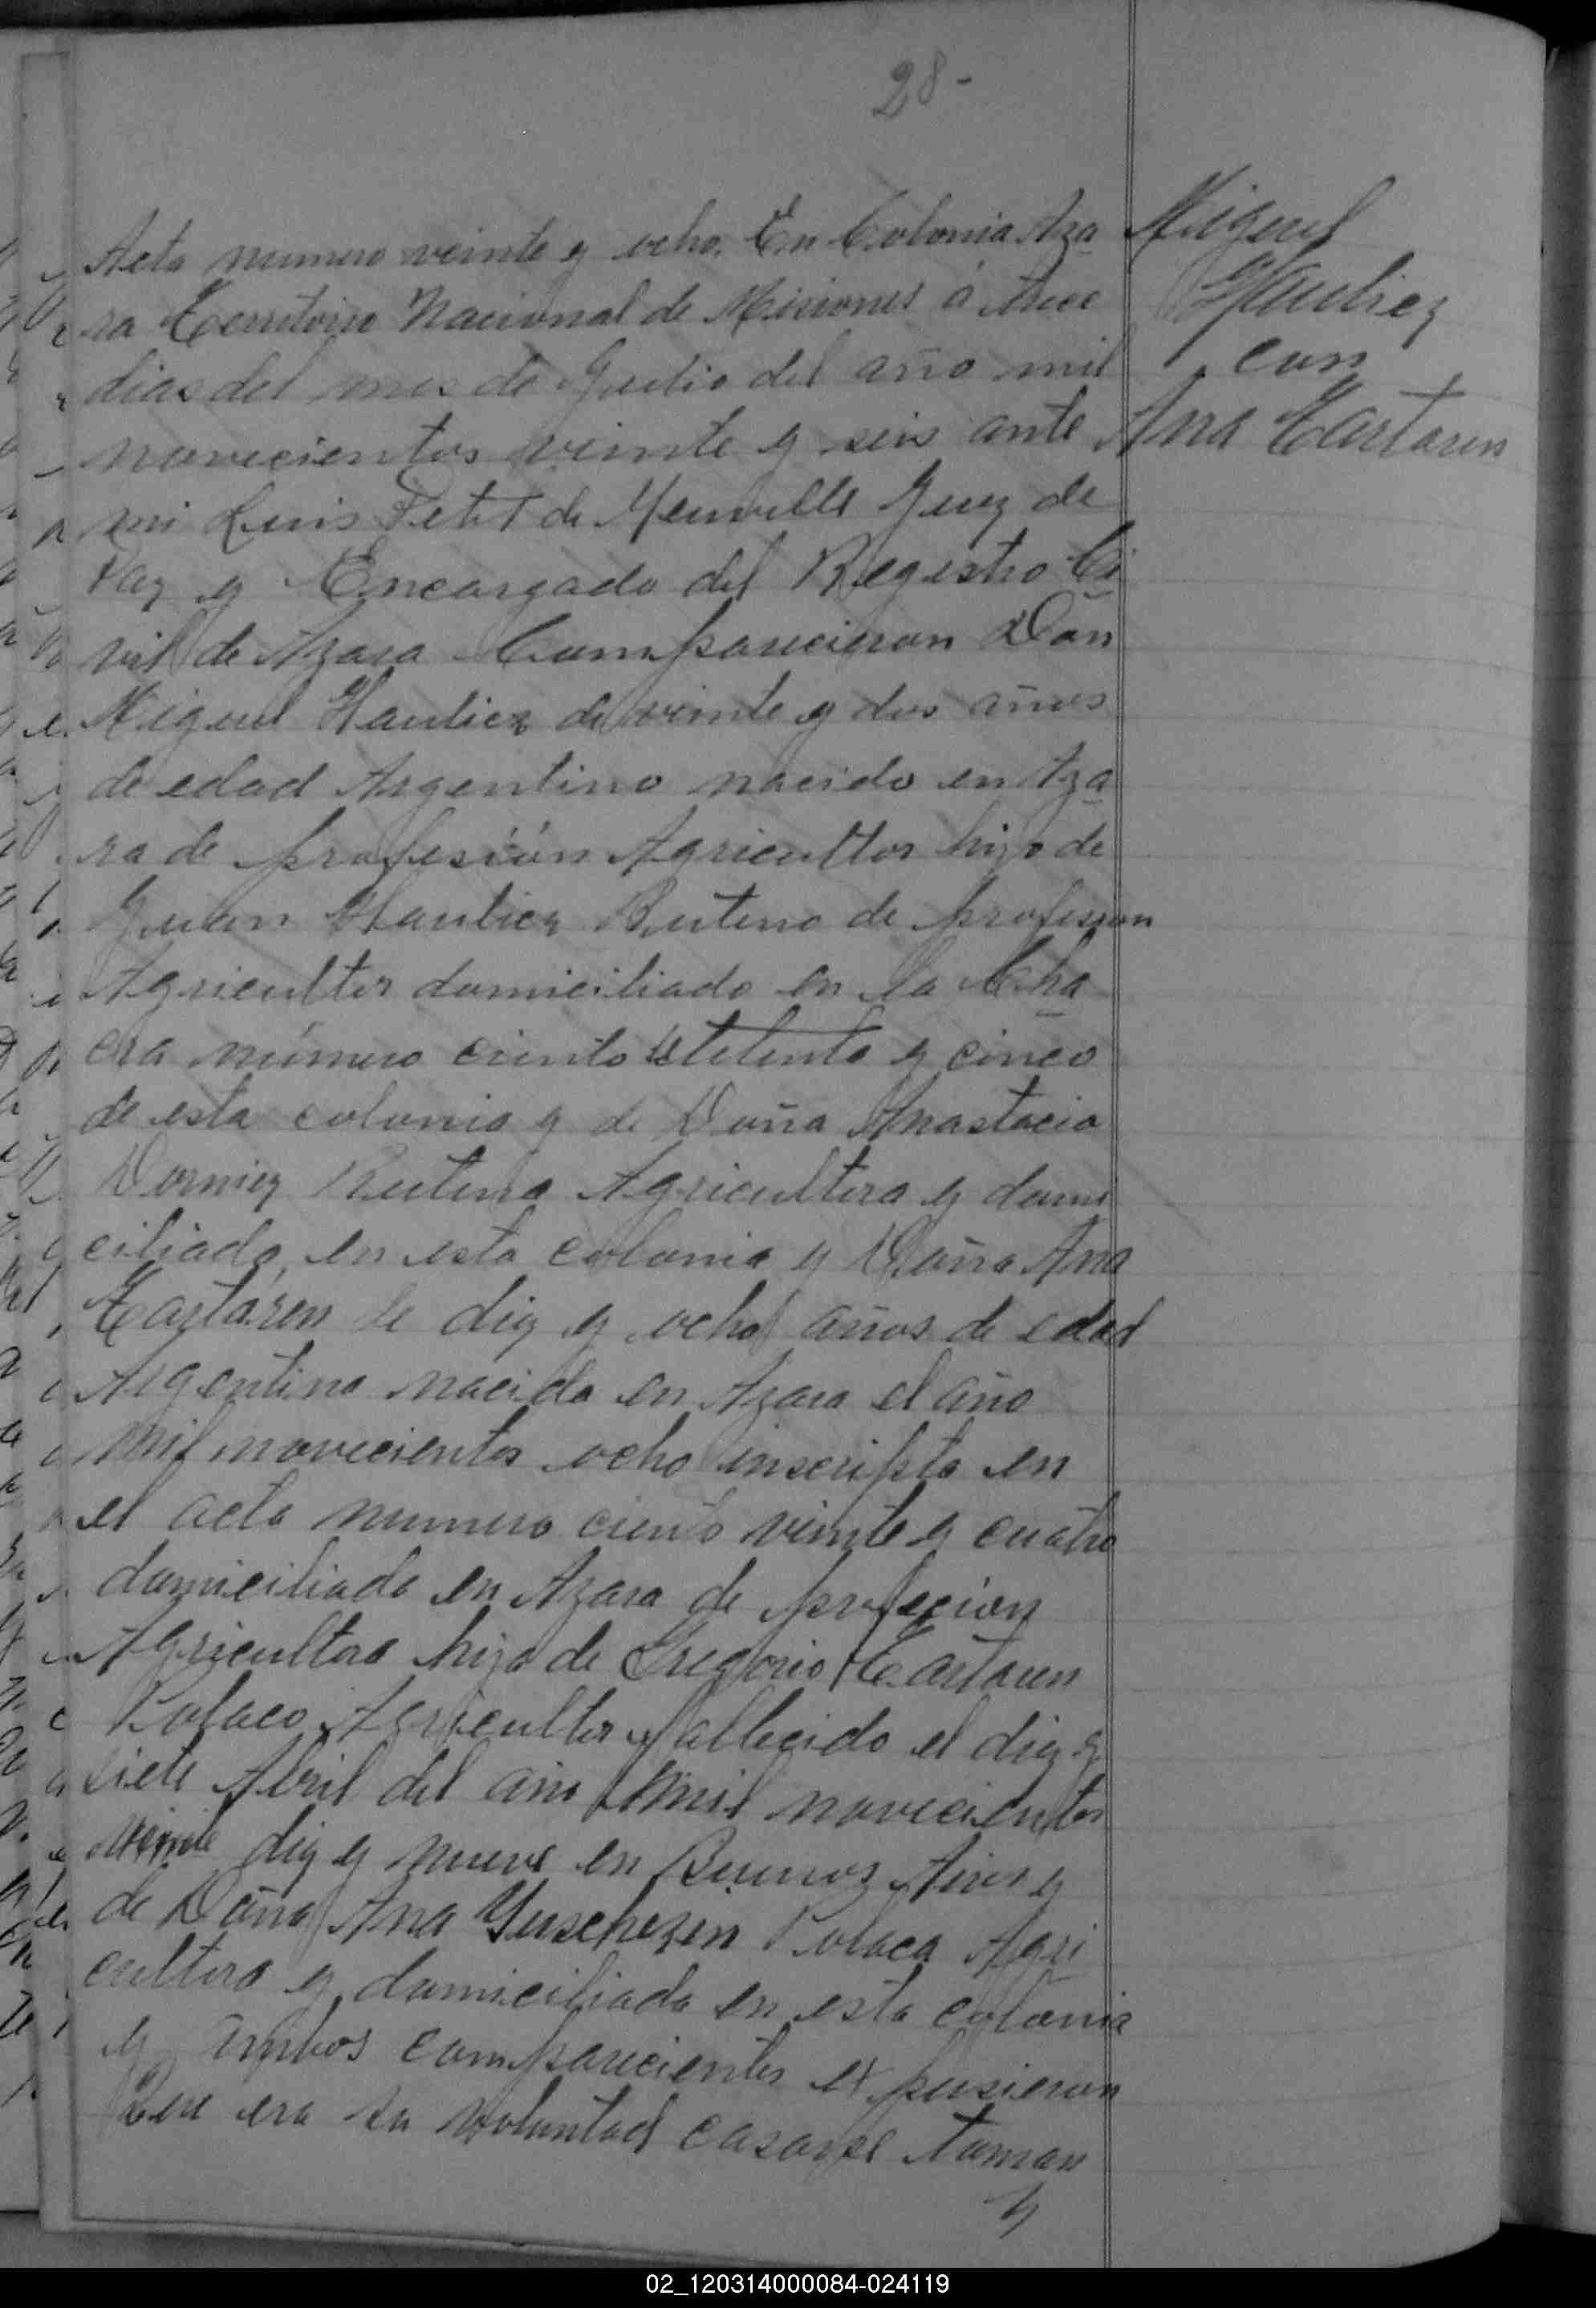 28-
Acta numero veinte y ocho. En Colonia Aza
ra Territorio Nacional de Misiones á trece
dias del mes de Julio del año mil
novecientos veinte y seis ante
mi Luis Petit de Meurville Juez de
Paz y Encargado del Registro Ci
vil de Azara Comparecieron Don
Miguel Hauliez de veinte y dos años
de edad Argentino nacido en Aza
ra de profesión Agricultor hijo de
Juan Hauliez Ruteno de profesion
Agricultor domiciliado en la Cha
cra número ciento setenta y cinco
de esta colonia y de Doña Anastacia
Rutena Agricultora y domi
ciliada en esta colonia y Doña Ana
de diez y ocho años de edad
Argentina nacida en Azara el año
mil novecientos ocho inscripta en
el acta numero ciento veinte y cuatro
domiciliada en Azara de profecion
Agricultora hija de Gregorio
Polaco Agricultor fallecido el diez y
siete Abril del año mil novecientos
diez y nueve en Buenos Aires y
de Doña Ana Polaca Agri
cultora y domiciliada en esta colonia
y ambos comparecientes expusieron
Que era su voluntad casarse toman
Miguel
Hauliez
con
Ana
02_120314000084-024119